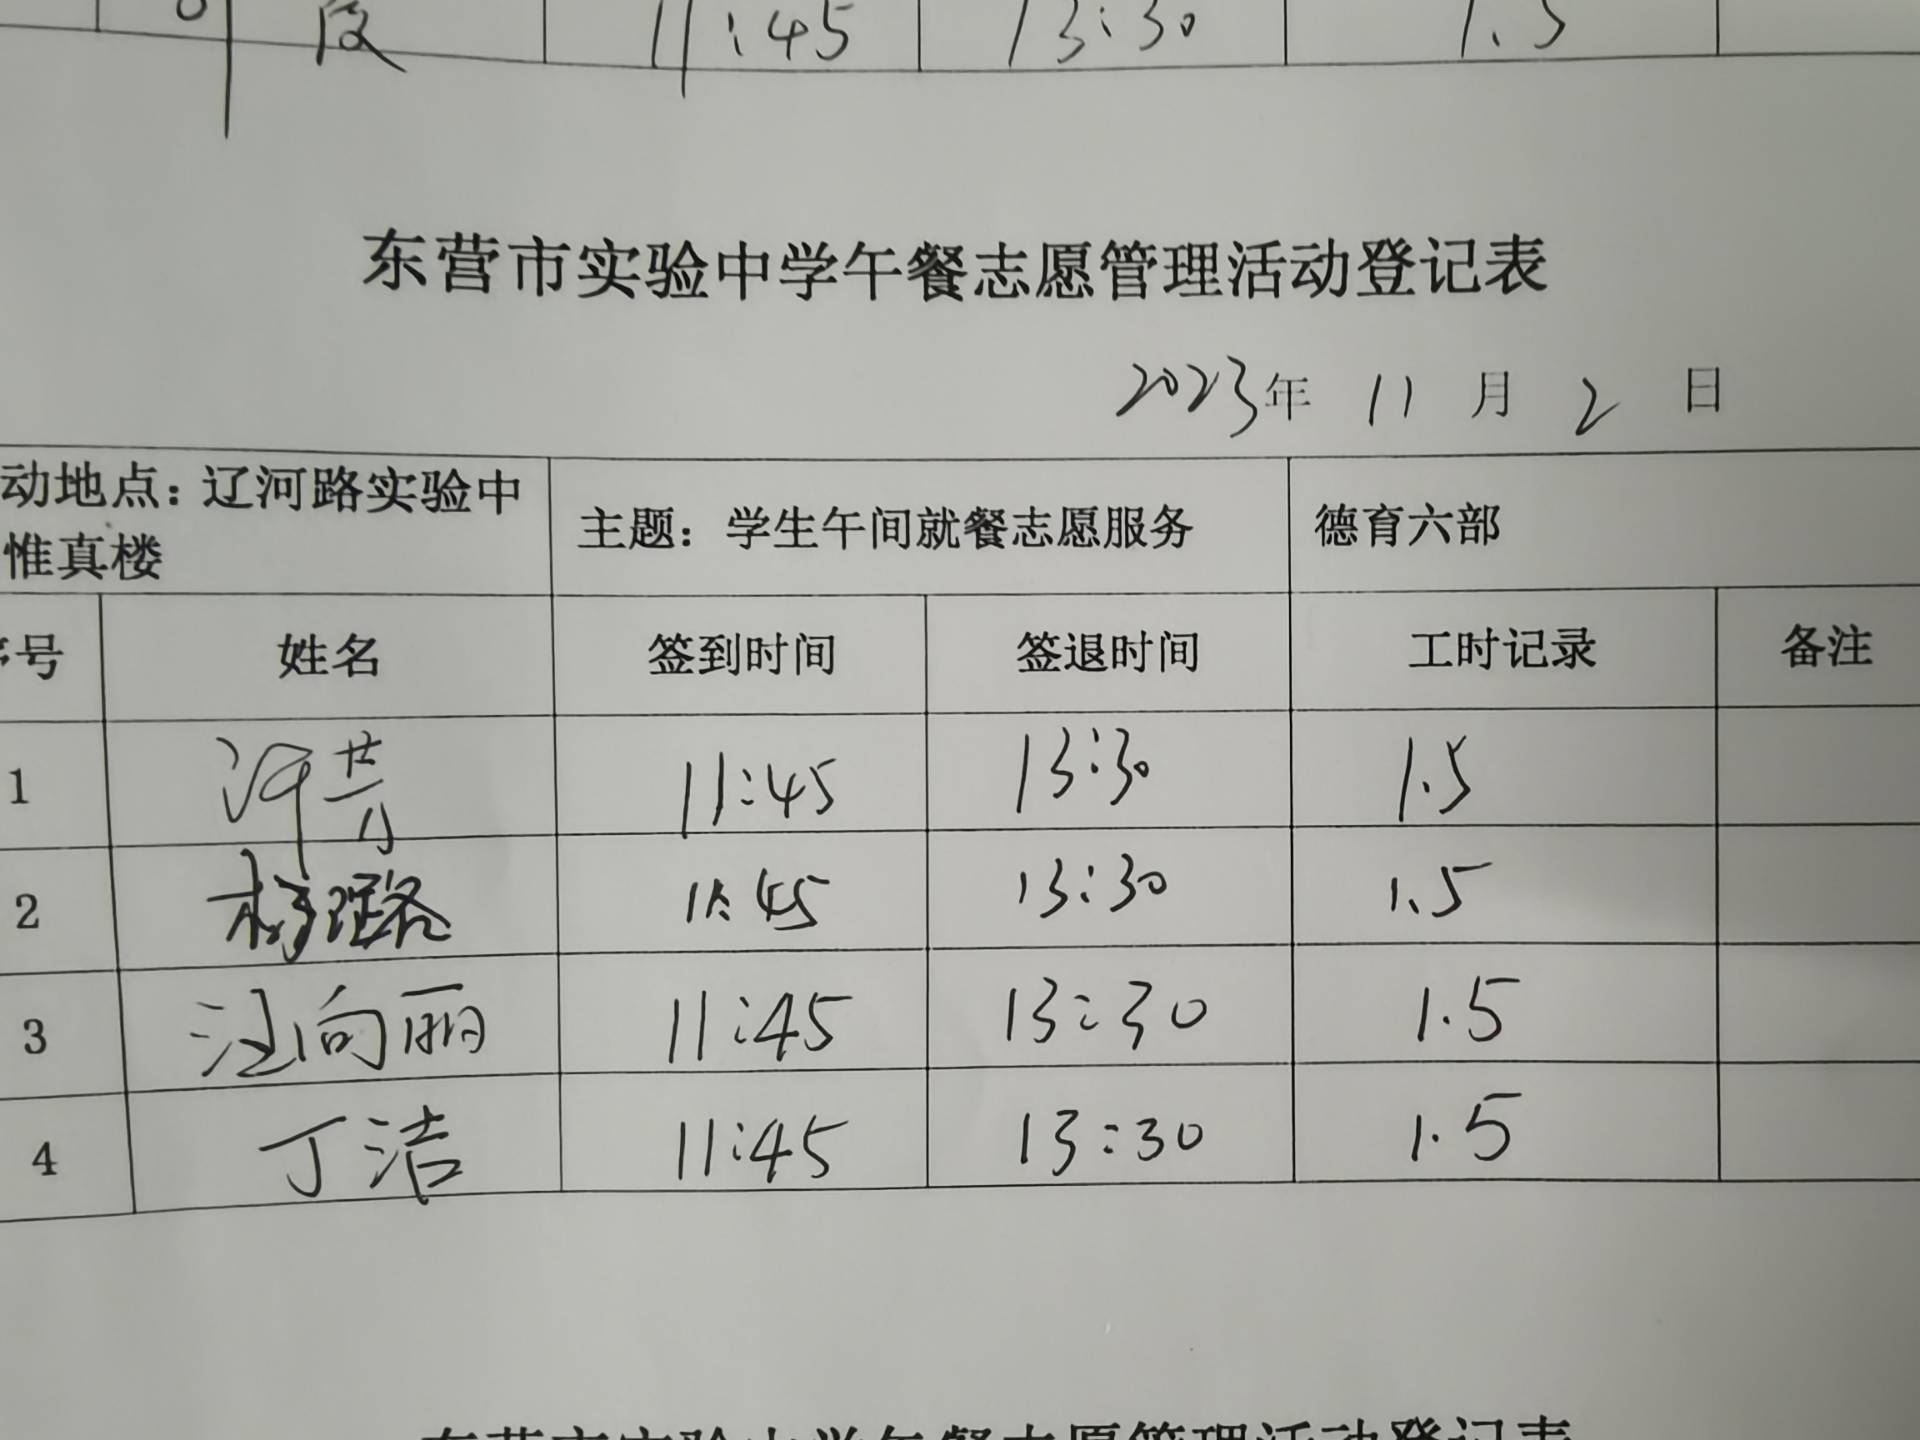 段 11:45 13:30 1.5
东营市实验中学午餐志愿管理活动登记表
2023年 11 月 2 日
动地点：辽河路实验中
惟真楼
主题：学生午间就餐志愿服务
德育六部
序号 姓名 签到时间 签退时间 工时记录 备注
1 11:45 13:30 1.5
2 杨璐 11:45 13:30 1.5
3 汪向丽 11:45 13:30 1.5
4 丁洁 11:45 13:30 1.5
东营市实验中学午餐志愿管理活动登记表